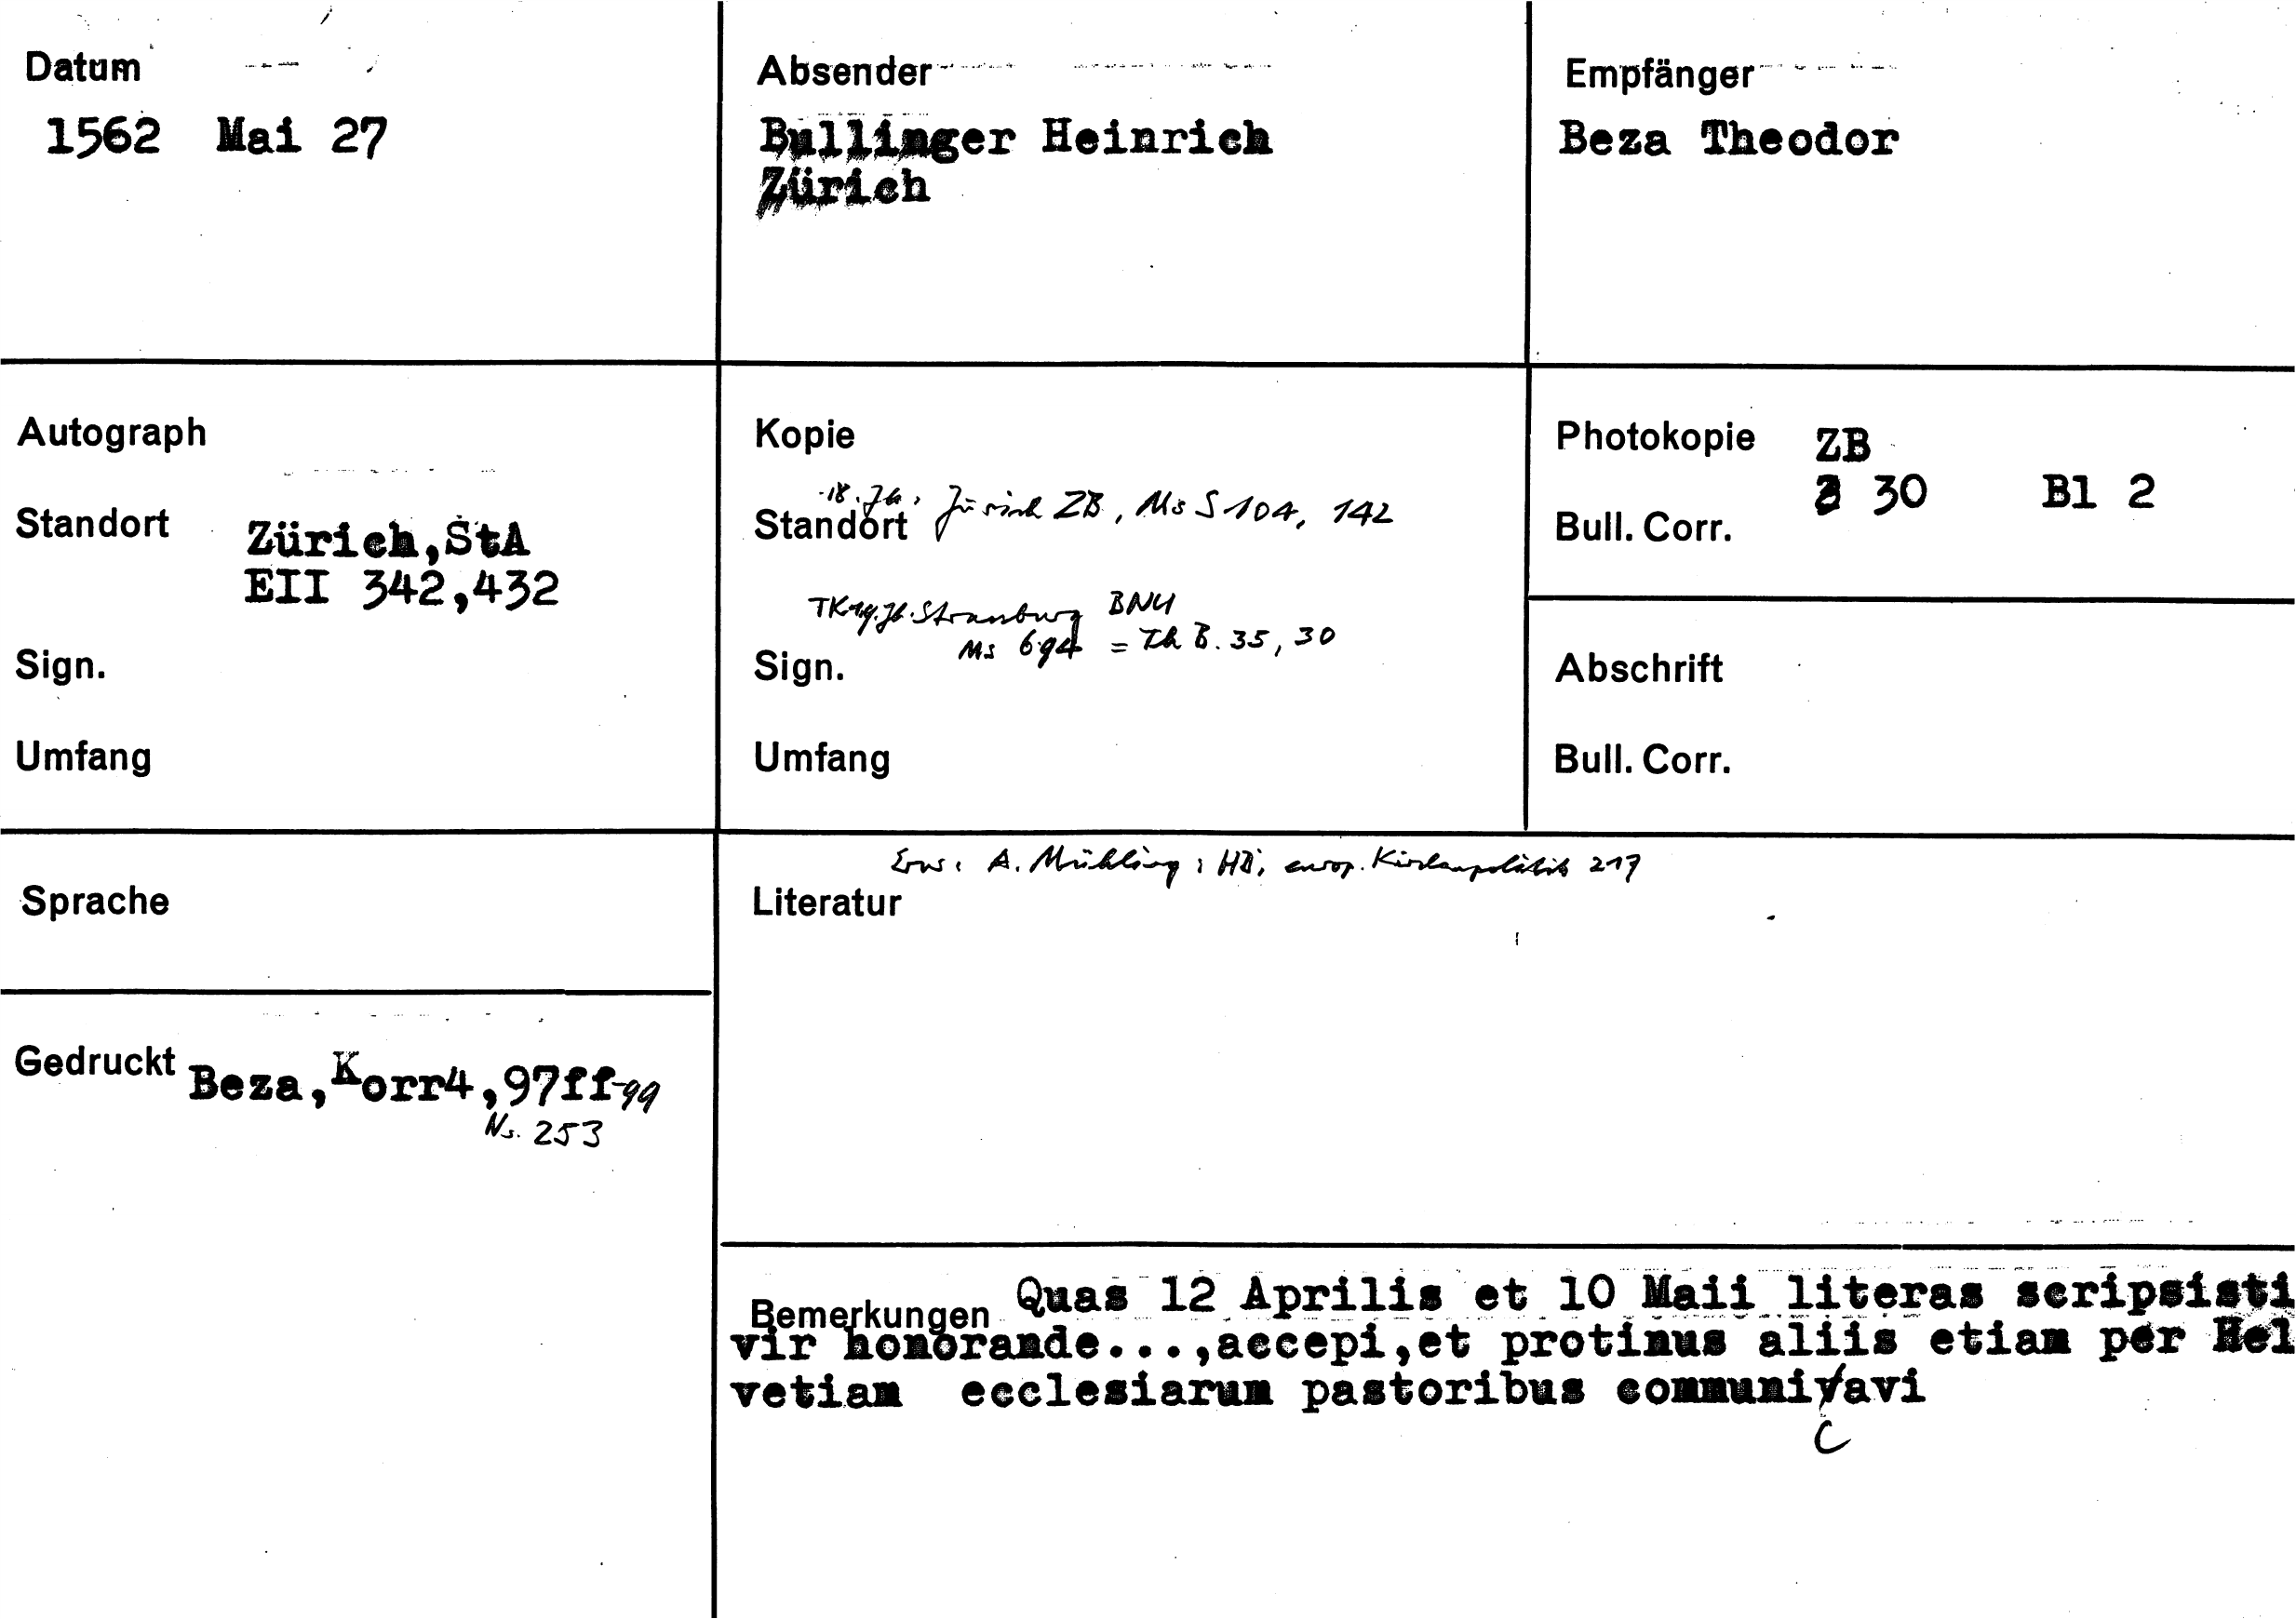 Datum
1562 Mai 27
Absender
Bullinger Heinrich
Zürich
Empfänger
Beza Theodor
Autograph
Standort Zürich,StA
EII 342,432
Sign.
Umfang
Kopie
18. Jh. Zürich ZB, Ms S 104, 142
Standort
TK 19. Jh. Strassburg BNU
Ms 694 = Th B. 35, 30
Sign.
Umfang
Photokopie ZB
30 Bl 2
Bull. Corr.
Abschrift
Bull. Corr.
Sprache
Gedruckt Beza,Korr4,97ff-99
Nr. 253
Erw. A. Mühling: HB, europ. Kirchenpolitik 217
Literatur
Bemerkungen Quas 12 Aprilis et 10 Maii literas scripsisti
vir honorande...,accepi,et protinus aliis etiam per Hel
vetiam ecclesiarum pastoribus communicavi